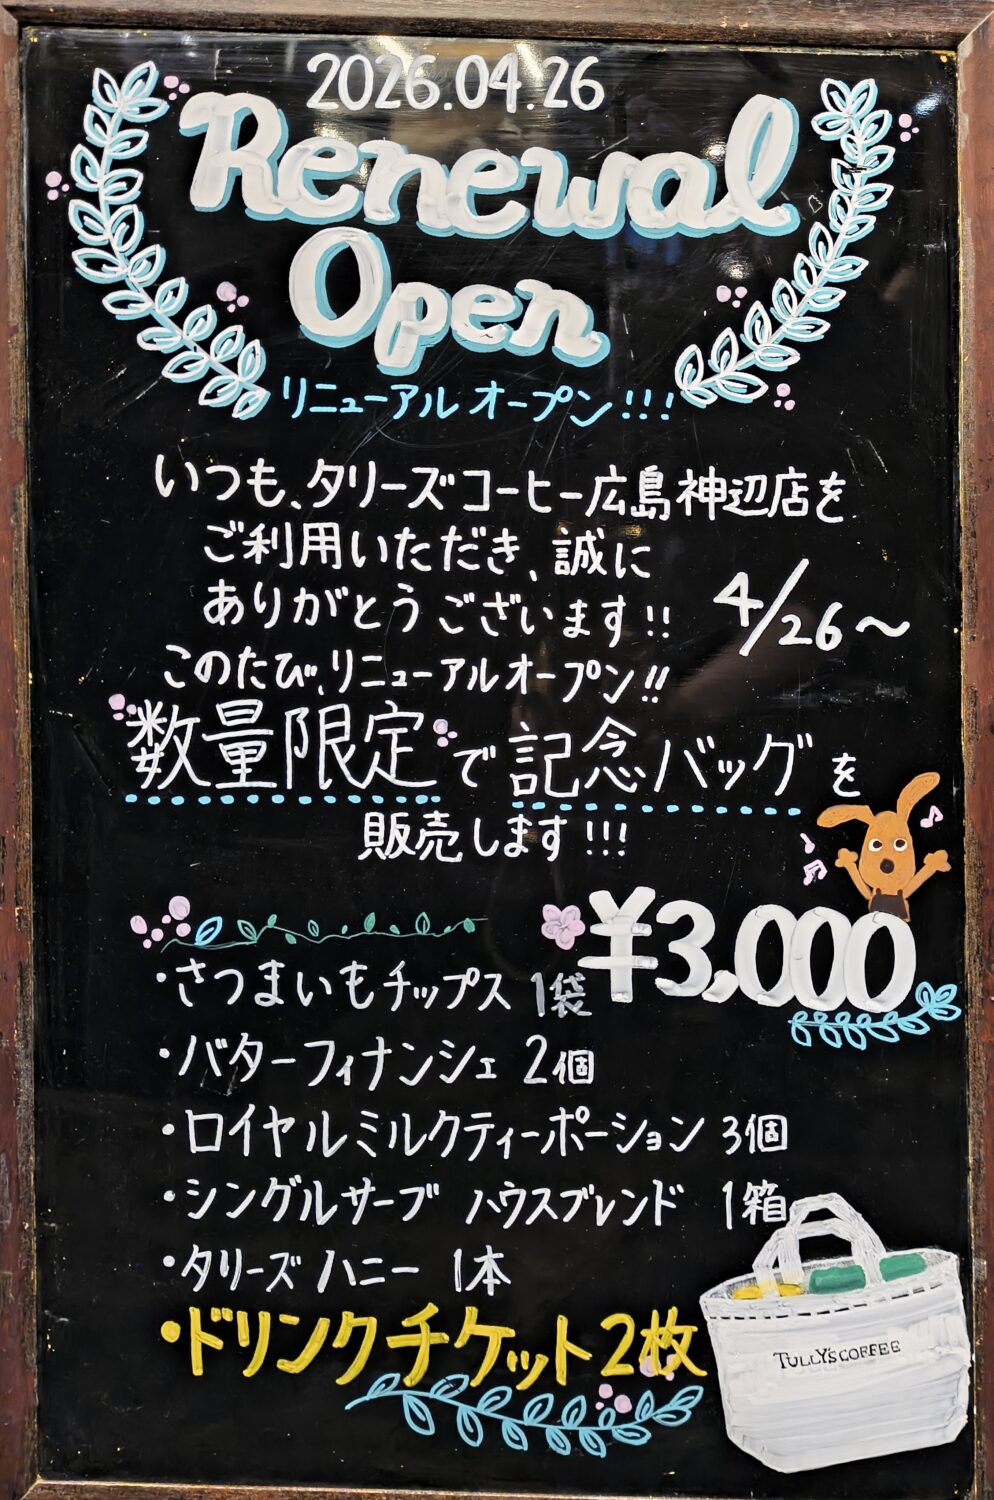 2026.04.26
Renewal
Open
リニューアルオープン!!!
いつも、タリーズコーヒー広島神辺店を
ご利用いただき、誠に
ありがとうございます!!
4/26〜
このたび、リニューアルオープン!!
数量限定で記念バッグを
販売します!!!
¥3,000
・さつまいもチップス 1袋
・バターフィナンシェ 2個
・ロイヤルミルクティーポーション 3個
・シングルサーブ ハウスブレンド 1箱
・タリーズハニー 1本
・ドリンクチケット2枚
TULLY'S COFFEE